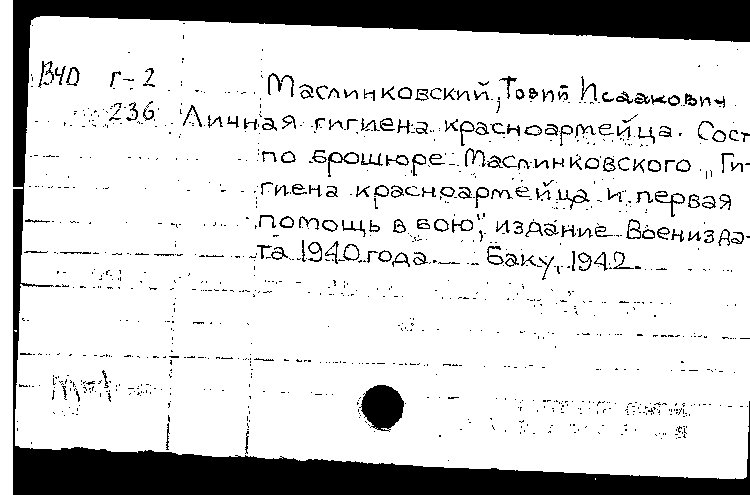 ВЧО г-2 Маслинковский, Товий Исаакович
236 Личная гигиена красноармейца. Сост
по брошюре Маслинковского „Ги-
гиена красноармейца и первая
помощь в бою", издание Воениздa-
та 1940 года. Баку, 1942.